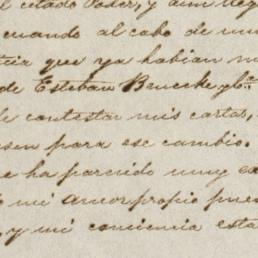 el citado Poder, y aun
cuando al cabo de
que ya habian
de Esteban Benecke y Cª
contestar mis cartas,
para ese cambio.
ha parecido muy
mi amor propio
, y mi conciencia esta